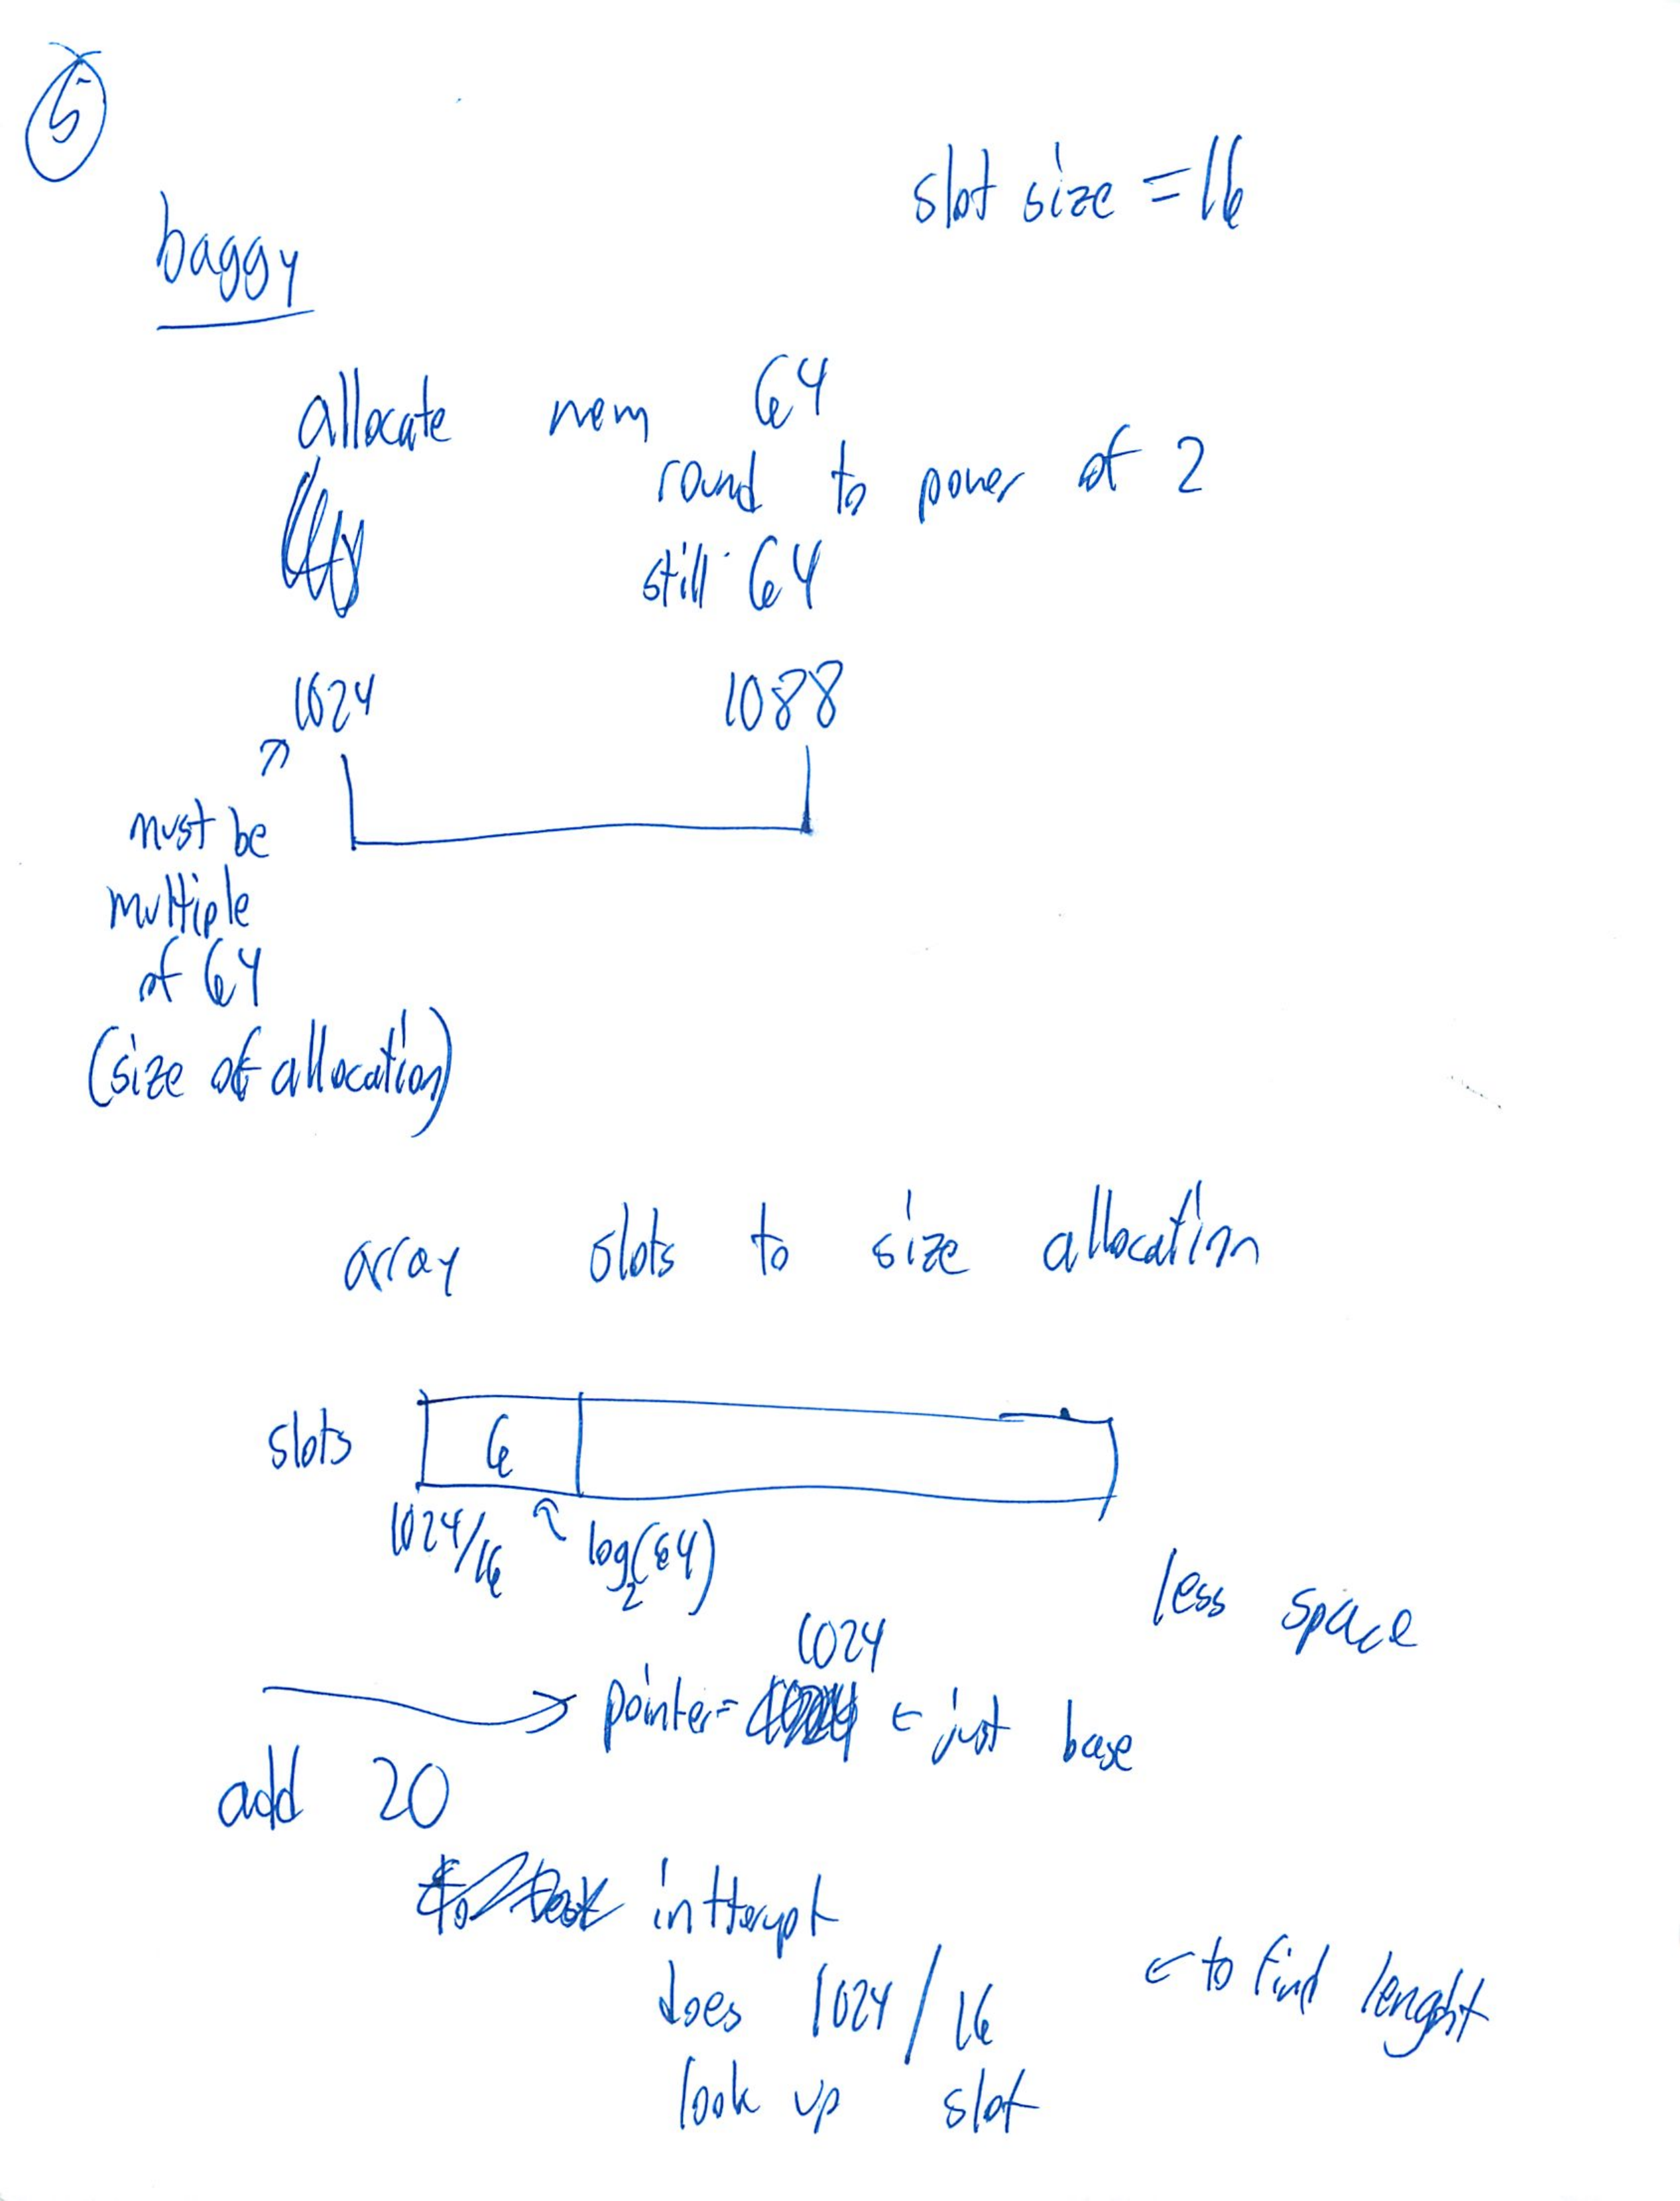 5
slot size = 16
baggy
allocate mem 64
round to power of 2
still 64
1024 1088
must be
multiple
of 64
(size of allocation)
array slots to size allocation
slots 6
1024/16 log2(64)
less space
1024
pointer= ← just base
add 20
intterupt
does 1024/16 ← to find lenght
look up slot